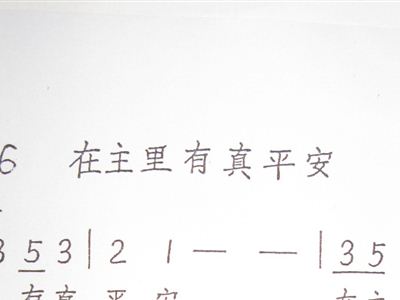 6 在主里有真平安
3 5 3 | 2 1 — — | 3 5
有真 平 安